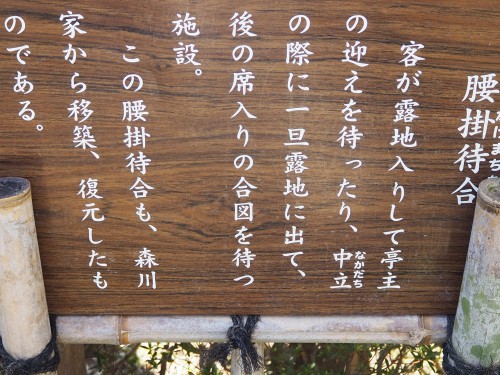 腰掛待合
客が露地入りして亭主
の迎えを待ったり、中立
なかだち
の際に一旦露地に出て、
後の席入りの合図を待つ
施設。
この腰掛待合も、森川
家から移築、復元したも
のである。